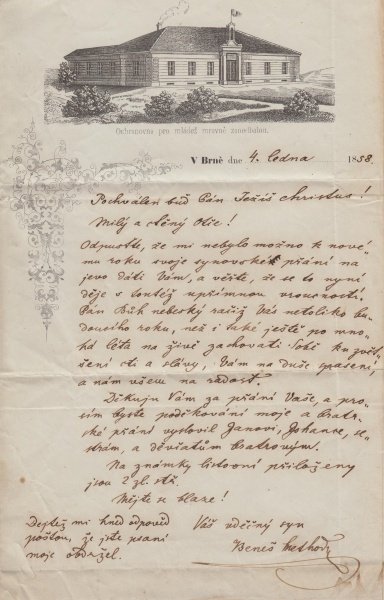 Ochranovna pro mládež mravně zanedbalou.
V Brně dne 4. ledna 1858.
Pochválen buď Pán Ježíš Christus!
Milý a ctěný Otče!
Odpusťte, že mi nebylo možno k nové-
mu roku svoje synovské přání na
jevo dáti Vám, a věřte, že se to nyní
děje s toutéž upřímnou vroucností.
Pán Bůh nebeský račiž Vás netoliko bu-
doucího roku, než i také ještě po mno-
há léta na živě zachovati Sobě ku
cti a slávy, Vám na duše spasení,
a nám všem na radost.
Děkuju Vám za přání Vaše, a pro-
sím byste poděkování moje a bratr-
ské přání vyslovil Janovi, Johance, se-
strám, a děvčatům bratrovým.
Na známky listovní přiloženy
jsou 2 zl. stř.
Mějte se blaze!
Dejtež mi hned odpověď
poštou, že jste psaní
moje obdržel.
Váš vděčný syn
Beneš Methoděj